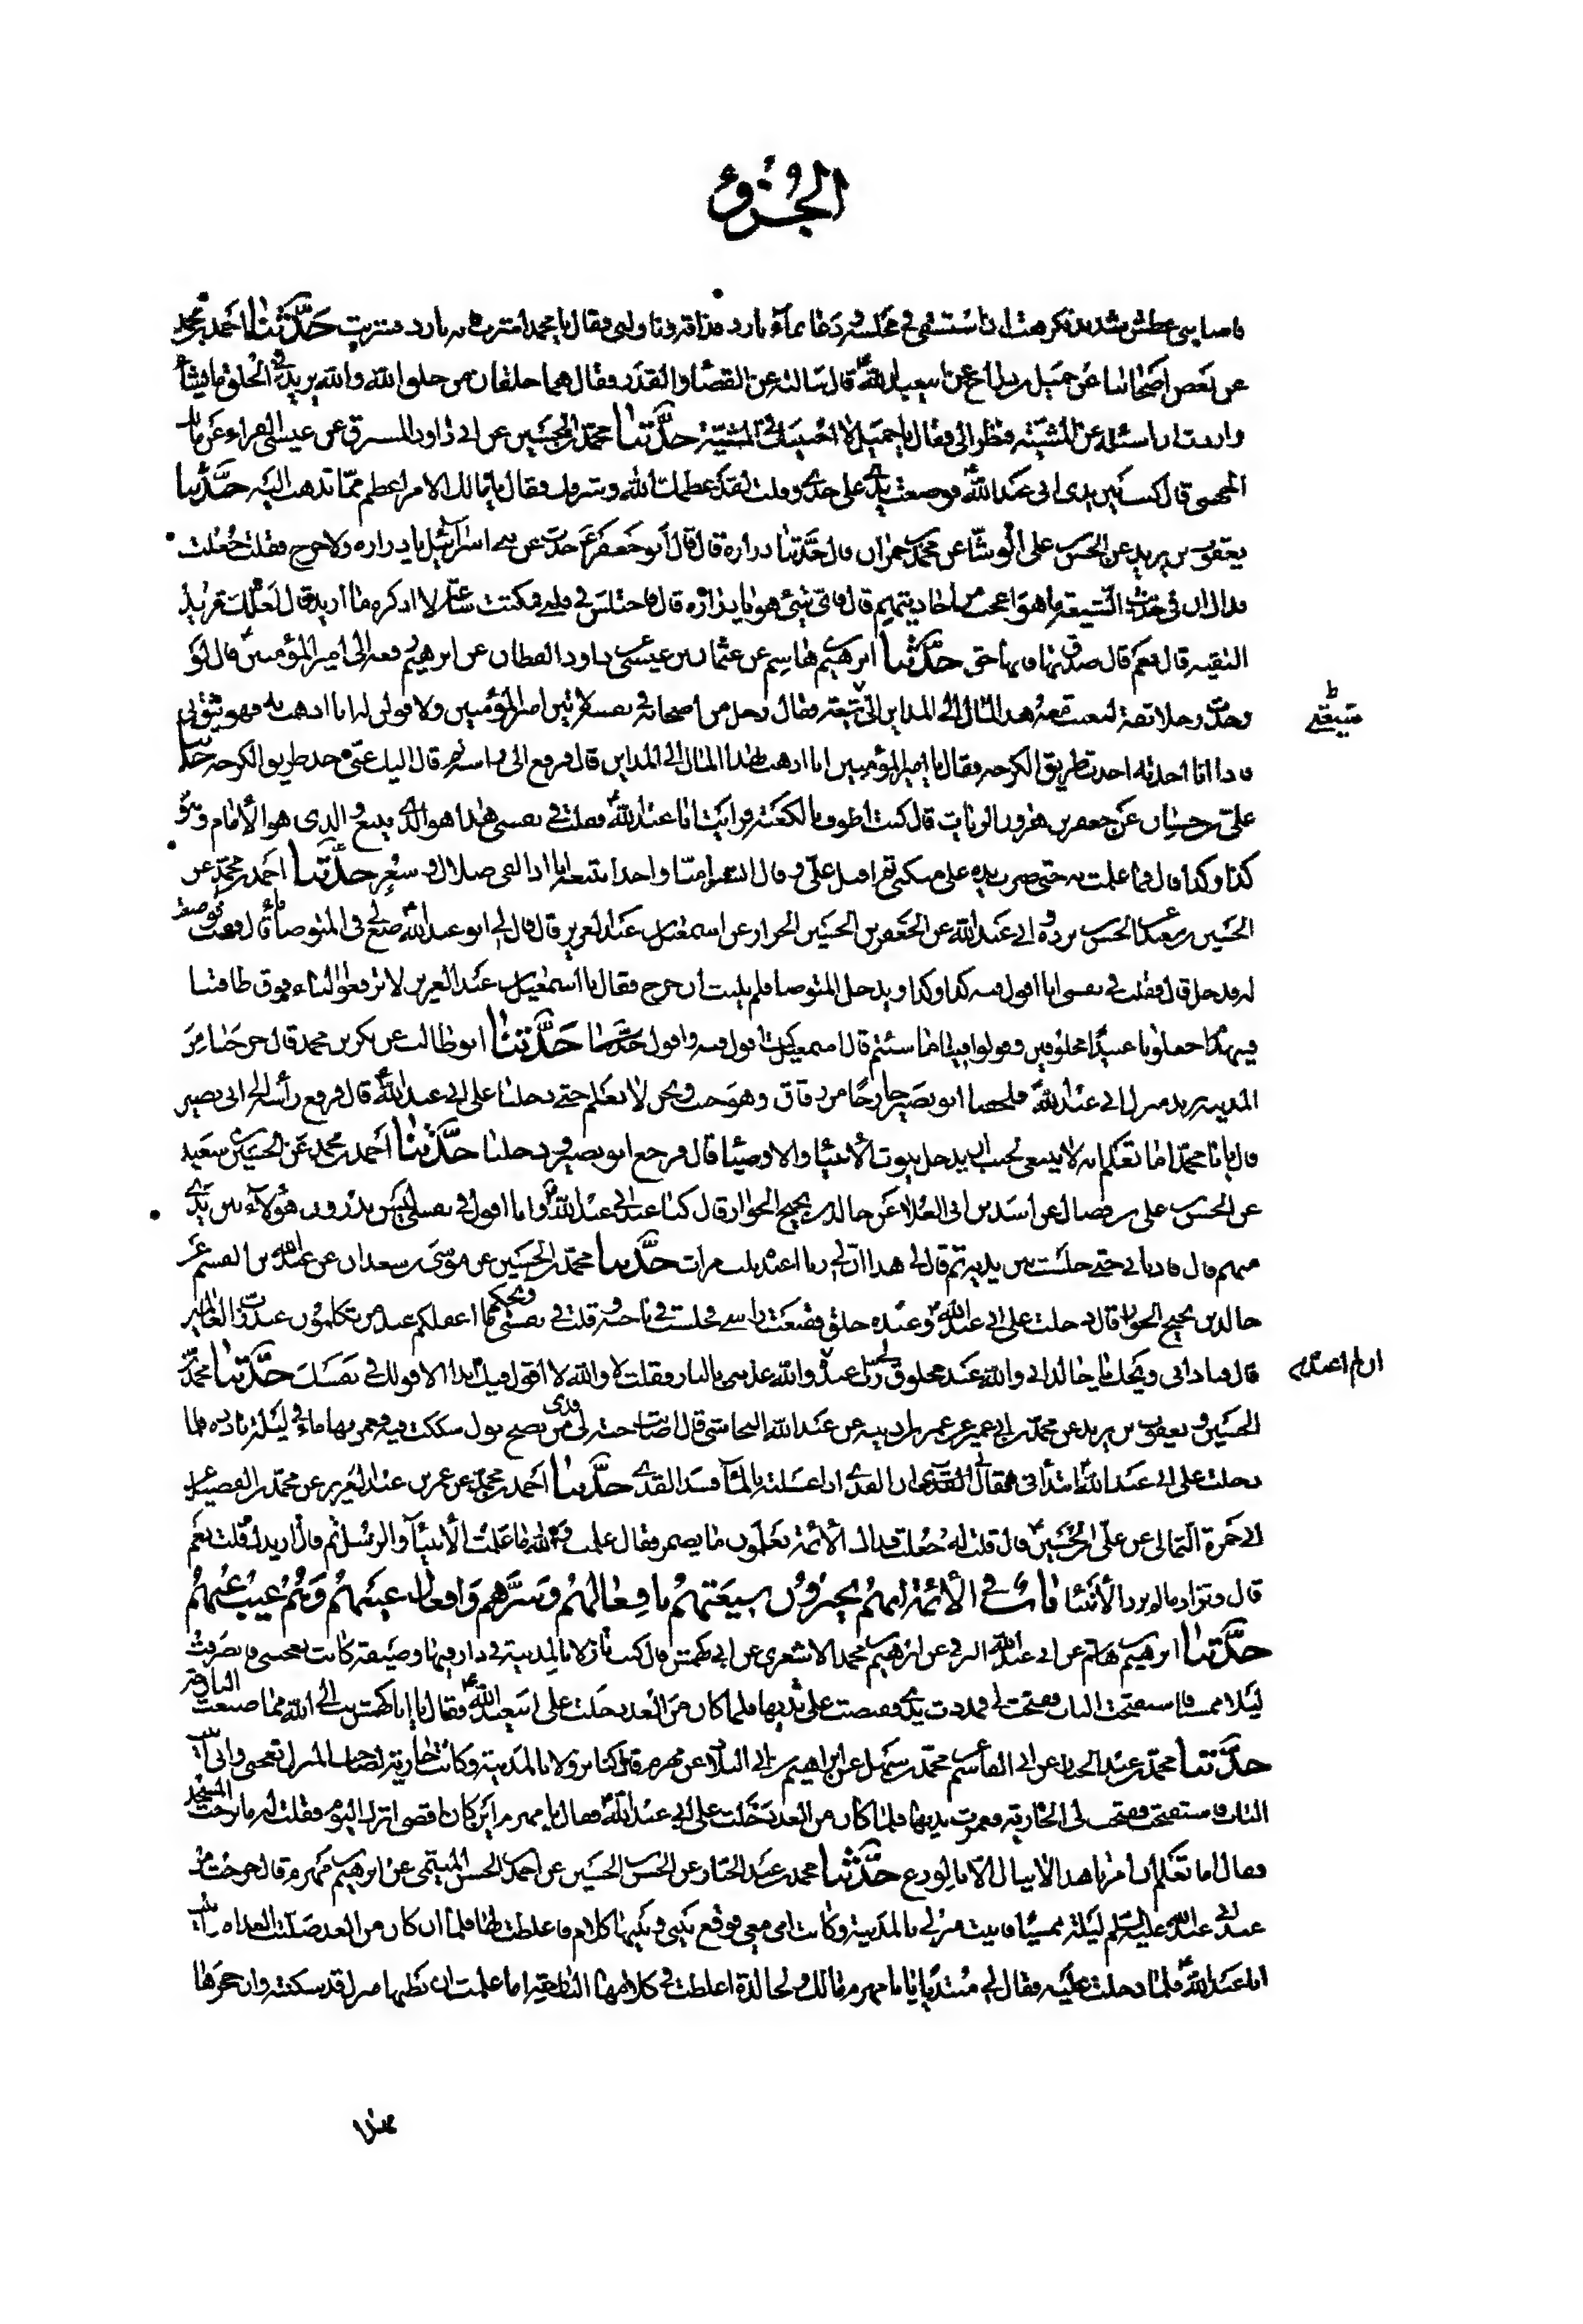 الجزؤ
فاصابنى عطش شديد فكرهت ان استسقى فى مجلسه فدعا بماء بارد فذاقه وناولنى وقال يا محمد اشرب فانه بارد فشربت حدثنا احمد بن محمد
عن بعض اصحابنا عن جميل بن دراج عن ابى عبد الله قال سالته عن القضا والقدر فقال هما خلقان من خلق الله والله يزيد فى الخلق ما يشا
واردت ان اسئله عن المشيته فنظر الى فقال يا جميل لا اجيبك فى المشية حدثنا محمد بن الحسين عن ابى داود المسترق عن عيسى الفراء عن مالك
الجهنى قال كنت بين يدى ابى عبد الله فوضعت يدى على خدى وقلت لقد عظمك الله وشرفك فقال يا مالك الامر اعظم مما تذهب اليه حدثنا
يعقوب بن يزيد عن الحسن بن على الوشا عن محمد بن حمران قال حدثنا زرارة قال قال ابو جعفر حدث عن بنى اسرائيل يا زراره ولا حرج فقلت جعلت
فداك ان فى حديث الشيعة ما هو اعجب من احاديثهم قال فاى شئ هو يا زراره قال فاختلس فى قلبى فمكثت ساعة لا اذكر ما اريد قال لعلك تريد
التقيه قال نعم قال صدق بها فانها حق حدثنا ابرهيم بن هاشم عن عثمان بن عيسى عن داود القطان عن ابرهيم رفعه الى امير المؤمنين قال لو
وجدت رجلا ثقة لبعثت معه هذا المال الى المداين الى شيعة فقال رجل من اصحابه فى نفسه لاتين امير المؤمنين ولاقولن له انا اذهب به فهو يثق بى
شيعتى
فاذا انا اخذته اخذت طريق الكرخه فقال يا امير المؤمنين انا اذهب بهذا المال الى المداين قال فرفع الى راسه ثم قال اليك عنى خذ طريق الكرخه حدثنا
على بن حسان عن جعفر بن هرون الزيات قال كنت اطوف بالكعبة فرايت ابا عبد الله فقلت فى نفسى هذا هو الذى يتبع والذى هو الامام وهو
كذا وكذا قال فما علمت به حتى ضرب يده على منكبى ثم اقبل على وقال ابشرا منا واحدا نتبعه انا اذا لفى ضلال وسعر حدثنا احمد بن محمد عن
الحسين بن سعيد عن الحسن بن برده عن ابى عبد الله عن جعفر بن الحسين الخزاز عن اسمعيل بن عبد العزيز قال قال لى ابو عبد الله ضع لى فى المتوضا ماء قال فقمت فوضعت
له فدخل قال فقلت فى نفسى انا اقول فيه كذا وكذا ويدخل المتوضا فلم يلبث ان خرج فقال يا اسمعيل بن عبد العزيز لا ترفعوا البناء فوق طاقتنا
فينهدم اجعلونا عبيدا مخلوقين وقولوا فينا ما شئتم قال اسمعيل كنت اقول فيه واقول حدثنا حدثنا ابو طالب عن بكر بن محمد قال خرجنا من
المدينه نريد منزل ابى عبد الله فلحقنا ابو بصير خارجا من زقاق وهو جنب ونحن لا نعلم حتى دخلنا على ابى عبد الله قال فرفع رأسه الى ابى بصير
قال يا ابا محمد اما تعلم انه لا ينبغى لجنب ان يدخل بيوت الانبيا والاوصيا قال فرجع ابو بصير ودخلنا حدثنا احمد بن محمد عن الحسين بن سعيد
عن الحسن بن على بن فضال عن اسد بن ابى العلا عن خالد بن نجيح الجواز قال كنا عند ابى عبد الله وانا اقول فى نفسى ليس يدرون هؤلاء بين يدى من
هم قال فادنانى حتى جلست بين يديه ثم قال لى هذا ان لى ربا اعبده ثلث مرات حدثنا محمد بن الحسين عن موسى بن سعدان عن عبد الله بن القسم عن
خالد بن نجيح الجواز قال دخلت على ابى عبد الله وعنده خلق فقنعت راسى وجلست فى ناحية وقلت فى نفسى ويحكم ما اغفلكم عند من تكلمون عند رب العالمين
قال فنادانى ويحك يا خالد انى والله عبد مخلوق لى رب اعبده والله عذبنى بالنار فقلت لا والله لا اقول فيك ابدا الا قولك فى نفسك حدثنا محمد بن
ان لم اعبده
الحسين ويعقوب بن يزيد عن محمد بن ابى عمير عن عمر بن اذينه عن عبد الله النجاشى قال اصاب جبة لى فروى من نضح بول شككت فيه فغمرتها ماء فى ليلة بارده فلما
دخلت على ابى عبد الله ابتدانى فقال ان الفرى اذا غسلته بالماء فسد الفرى حدثنا احمد بن محمد عن عمر بن عبد العزيز عن محمد بن الفضيل عن
ابى حمزة الثمالى عن على بن الحسين قال قلت له جعلت فداك الائمة يعلمون ما يضمر فقال علمت والله ما علمت الانبيا والرسل ثم قال ازيدك قلت نعم
قال ونزاد ما لم يزد الانبيا باب فى الائمة انهم يخبرون شيعتهم بافعالهم وسرهم وافعال عيبهم وهم عيب عنهم
حدثنا ابرهيم بن هاشم عن ابى عبد الله البرقى عن ابرهيم بن محمد الاشعرى عن ابى كهمس قال كنت نازلا بالمدينة فى دار فيها وصيفة كانت تعجبنى فانصرفت
ليلا ممسيا فاستفتحت الباب ففتحت لى فمددت يدى فقبضت على ثديها فلما كان من الغد دخلت على ابى عبد الله فقال يا ابا كهمس تب الى الله مما صنعت البارحة
حدثنا محمد بن عبد الجبار عن ابى القاسم عن محمد بن سهل عن ابراهيم بن ابى البلاد عن مهزم قال كنا نزولا بالمدينة وكانت جارية لصاحب المنزل تعجبنى وانى اتيت
الباب فاستفتحت ففتحت لى الجارية فغمزت ثديها فلما كان من الغد دخلت على ابى عبد الله فقال يا مهزم اين كان اقصى اثرك اليوم فقلت له ما برحت المسجد
فقال اما تعلم ان امرنا هذا لا ينال الا بالورع حدثنا محمد بن عبد الجبار عن الحسن بن الحسين عن احمد بن الحسن الميثمى عن ابرهيم بن مهزم قال خرجت من
عند ابى عبد الله عليه السلم ليلة ممسيا فاتيت منزلى بالمدينة وكانت امى معى فوقع بينى وبينها كلام فاغلظت لها فلما ان كان من الغد صليت الغداة واتيت
ابا عبد الله فلما دخلت عليه فقال لى مبتديا يا ابا مهزم مالك ولخالدة اغلظت فى كلامها البارحة اما علمت ان بطنها منزل قد سكنته وان حجرها